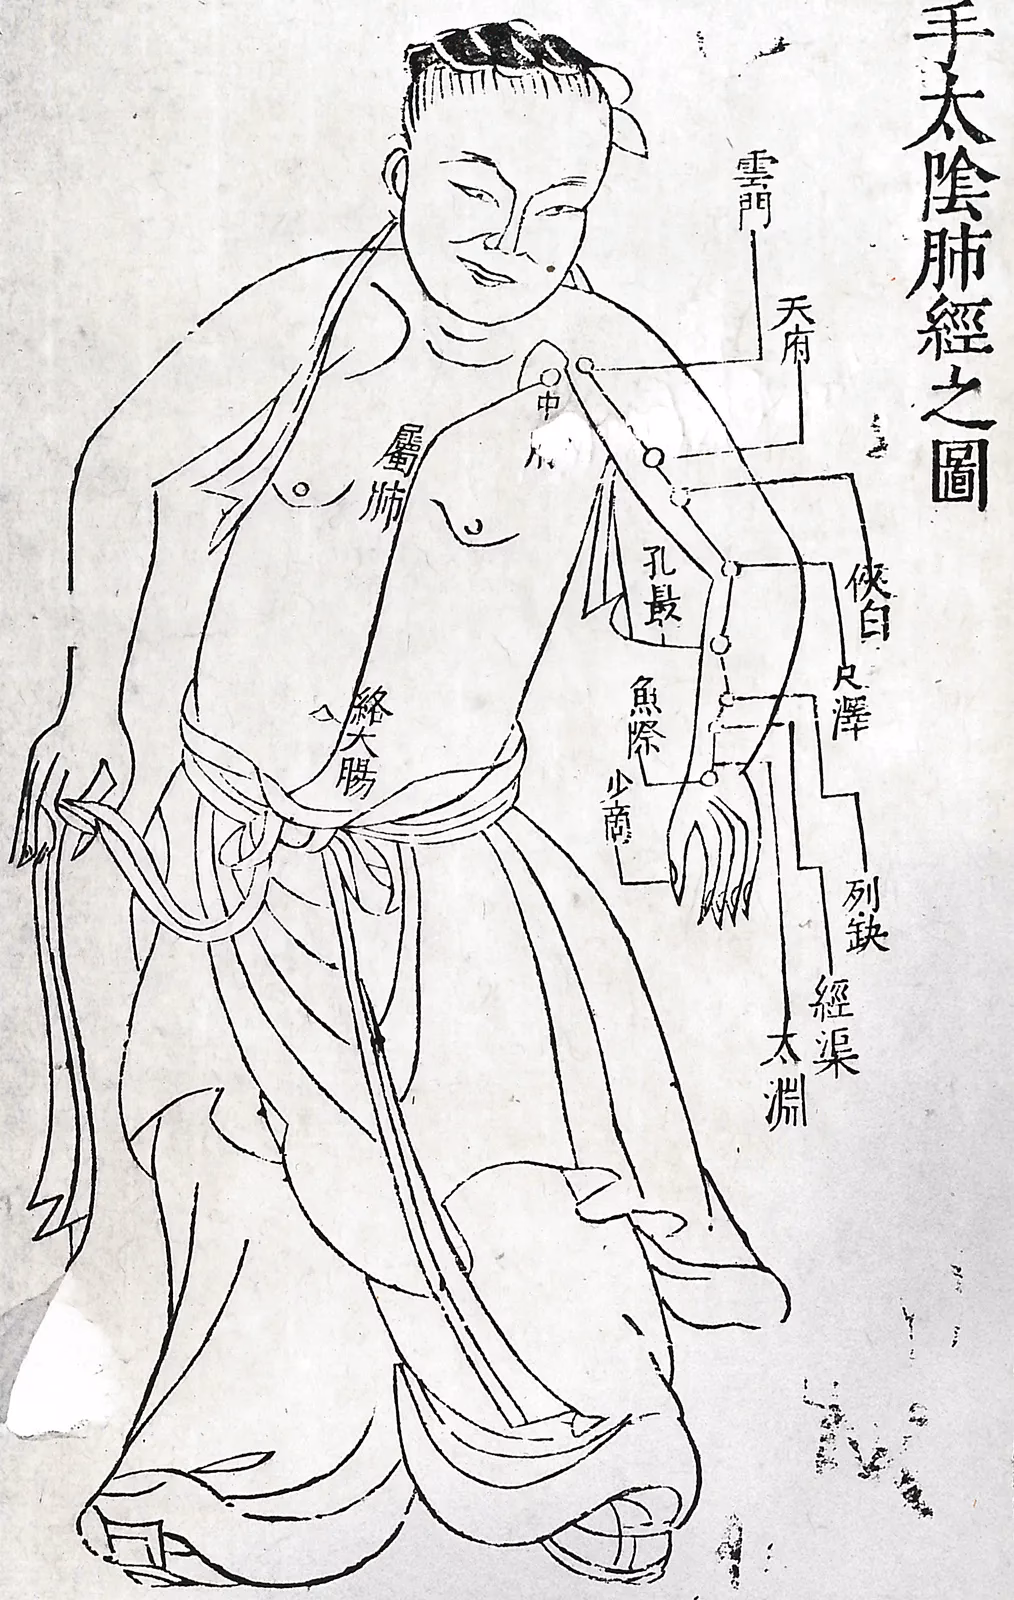 手太陰肺經之圖
雲門
天府
俠白
尺澤
列缺
經渠
太淵
中
孔最
魚際
少商
屬肺
絡大腸